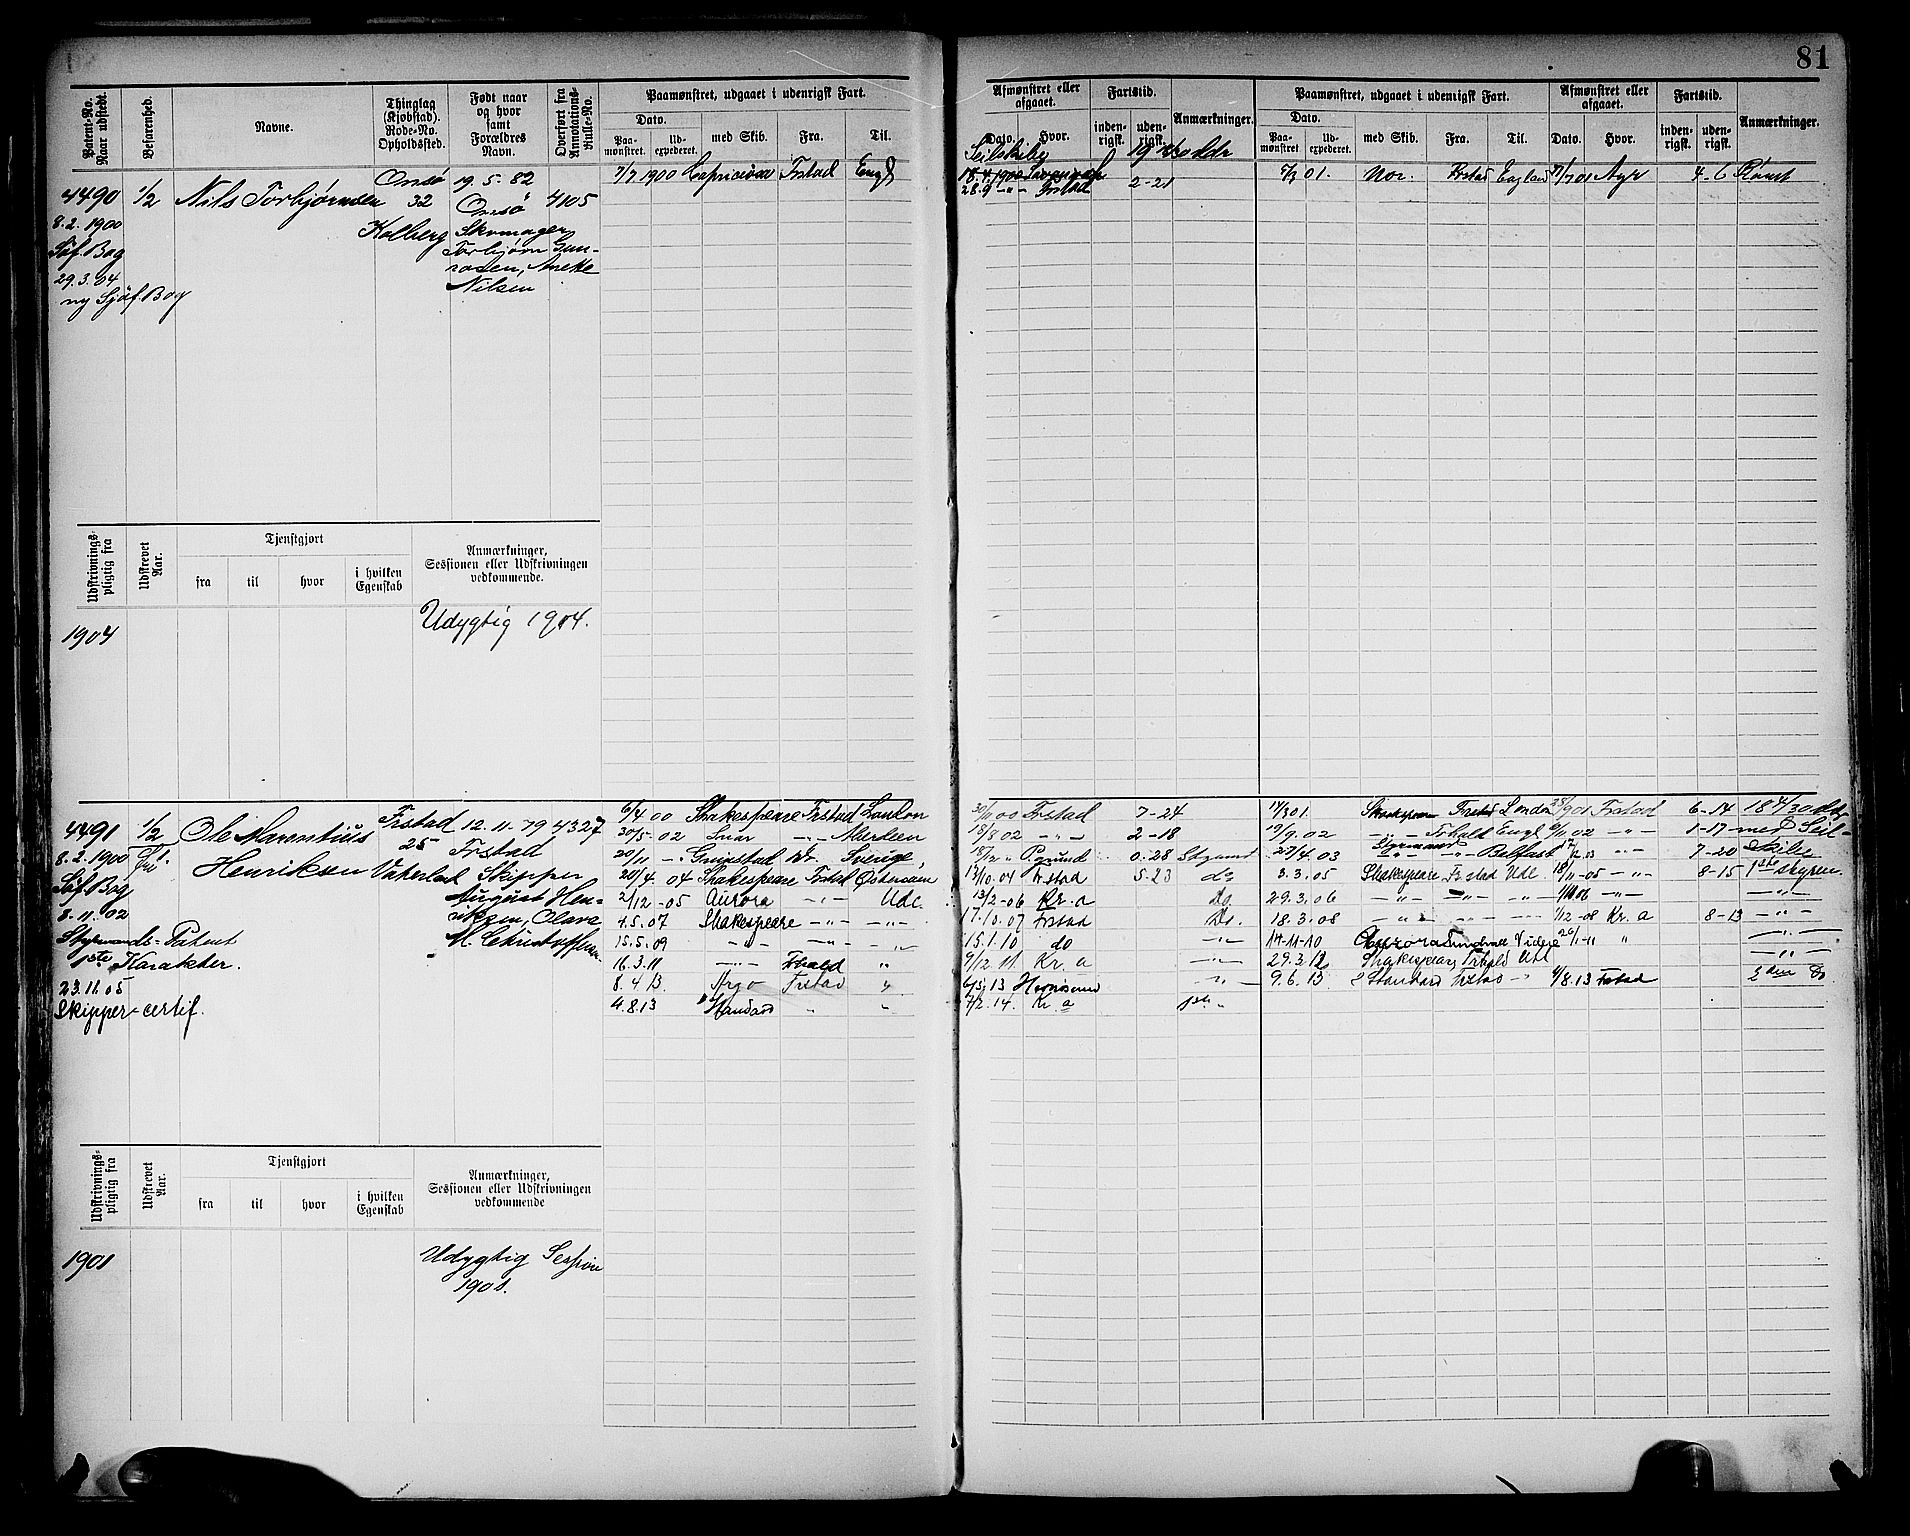 81
Patent-No. Naar udstedt.
Befarenhed.
Navne.
Thinglag (Kjøbstad). Rode-No. Opholdssted.
Født naar og hvor samt Forældres Navn.
Overført fra Annotations-Rulle-No.
Paamønstret, udgaaet i udenrigsk Fart.
Dato.
Paa-mønstret.
Ud-expederet.
med Skib.
Fra.
Til.
Afmønstret eller afgaaet.
Dato.
Hvor.
Fartstid.
inden-rigsk.
uden-rigsk.
Anmærkninger.
Paamønstret, udgaaet i udenrigsk Fart.
Dato.
Paa-mønstret.
Ud-expederet.
med Skib.
Fra.
Til.
Afmønstret eller afgaaet.
Dato.
Hvor.
Fartstid.
inden-rigsk.
uden-rigsk.
Anmærkninger.
4490 1/2 Nils Torbjørnsen Onsø 19.5.82 4105
32 Onsø
8.2.1900 Kolberg Skomager
Søf. Bog Torbjørn Gun-
29.3.04 rosen, Anette
ny Sjøf. Bog Nilsen
7/7 1900 Capricivin Frstad Engl
Seilskibe
18.4.1900
28.9 -"- Frstad 2-21
7/3 01. Nor. Frstad England 7/7 01 Ayr 4-6
Udskrivnings-pligtig fra
Udskrevet Aar.
Tjenstgjort
fra
til
hvor
i hvilken Egenskab
Anmærkninger, Sessionen eller Udskrivningen vedkommende.
1904
Udygtig 1904.
4491 1/2 Ole Marentius Frstad 12.11.79 4327
8.2.1900 Henriksen 25 Frstad
Søf Bog Vaterland Skipper
8.11.02 August Hen-
Styrmands-Patent riksen, Olava
1ste Karakter. M. Christoffersen
23.11.05
Skipper-certif.
6/4 00 Shakespeare Frstad London
30/5-02 -"- Aberdeen
20/11 -"- Grimstad Sverige
20/4 04 Shakespeare Frstad Østersøen
2/12-05 Aurora -"- Udl.
4.5.07 Shakespeare -"- -"-
15.5.09 -"- -"- -"-
16.3.11 -"- Frhald "
8.4.13 Argo Frstad "
4.8.13 Standard " "
30/11 00 Frstad 7-24
18/8 02 -"- 2-18
18/12 " P.grund 0-28 Styrmd
13/10.04 Frstad 5-23 do
13/2-06 Kr.a Do.
17.10.07 Frstad Do.
15.1.10 do -"-
9/12.11. Kr.a -"-
6/5 13 Hernösand -"-
7/2.14. Kr.a 1ste "
14/3 01. Shakespeare Frstad London 28/9 01 Frstad 6-14 18 4/30 ddr
19/9.02 -"- Frhald Engl. 9/11 02 -"- 1-17 med Seil-
23/4.03 Styrmand -"- Belfast -"- 7-20 skibe
3.3.05 Shakespeare Frstad Udl 18/11-05 -"- 8-15 1ste styrm.
29.3.06 -"- -"- -"- -"- -"-
18.3.08 -"- -"- -"- 1/12-08 Kr.a 8-13 -"-
14-11-10 Aurora Sundsvall Vidre 26/1-11 " -"-
29.3.12 Shakespeare, Frhald Udl -"-
9.6.13 Standard Frstad -"- 4/8.13 Frstad 2den Do
Udskrivnings-pligtig fra
Udskrevet Aar.
Tjenstgjort
fra
til
hvor
i hvilken Egenskab
Anmærkninger, Sessionen eller Udskrivningen vedkommende
1901
Udygtig Session
1901.